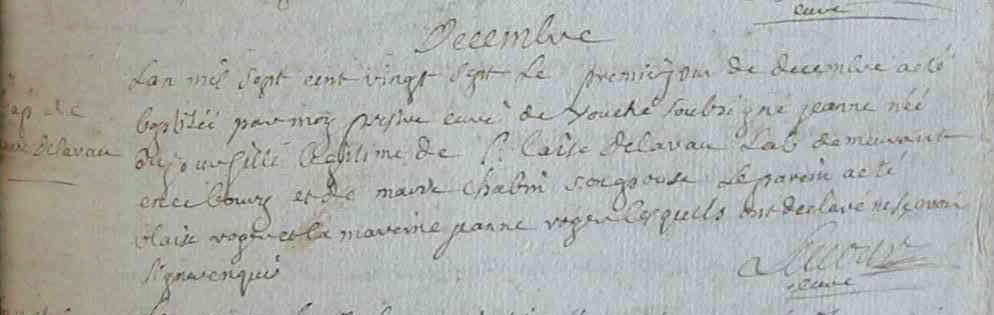 curé
Decembre
Lan mil sept cent vingt sept le premier jour de decembre a eté
bap de
Delavau
baptiséé par moy prestre curé de vouché soubsigné jeanne néé
dujour fillé legitime de blaise delavau Lab demeurant
en ce bourg et de marie chabin son epouse Le parein a eté
blaise roger et la mareine jeanne roger lesquels ont declaré ne sçavoir
signer enquis
curé